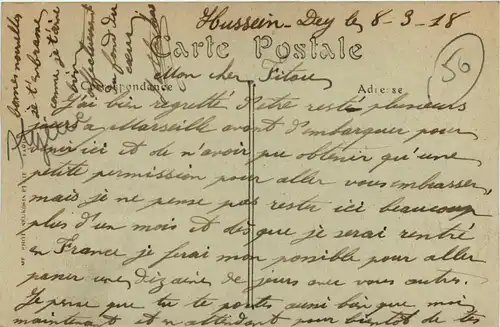 Hussein-Dey le 8-3-18
56
Carte Postale
Mon cher Titou,
Correspondance
Adresse
J'ai bien regretté d'être resté plusieurs
jours à Marseille avant d'embarquer pour
venir ici et de n'avoir pu obtenir qu'une
petite permission pour aller vous embrasser,
mais je ne pense pas rester ici beaucoup
plus d'un mois et dès que je serai rentré
en France je ferai mon possible pour aller
passer une dizaine de jours avec vous autres.
Je pense que tu te portes aussi bien que moi
maintenant et en attendant pour bientôt de tes
bonnes nouvelles
je t'embrasse
comme je t'aime
bien
affectueusement
du fond du
cœur